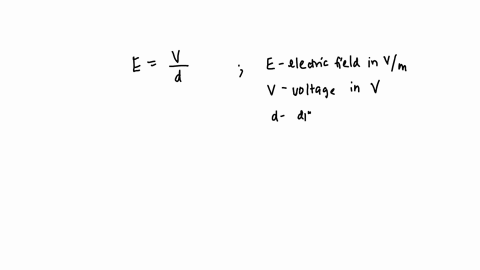 E = V/d ; E - electric field in V/m
V - voltage in V
d -